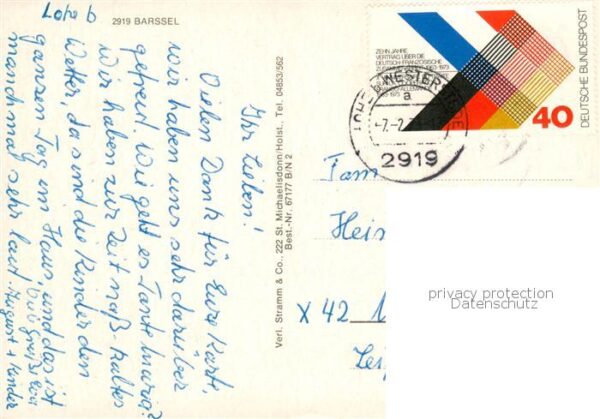 Lohe b
2919 BARSSEL
Ihr Lieben!
Vielen Dank für Eure Karte,
wir haben uns sehr darüber
gefreut. Wie geht es Tante Maria?
Wir haben zur Zeit naß-kaltes
Wetter, da sind die Kinder den
ganzen Tag im Haus, und das ist
manchmal sehr laut.
Es grüßt Euch
August + Kinder
Verl. Stramm & Co., 222 St. Michaelisdonn/Holst., Tel. 04853/562
Best.-Nr. 67177 B/N 2
ZEHN JAHRE
VERTRAG ÜBER DIE
DEUTSCH-FRANZÖSISCHE
DEUTSCHE BUNDESPOST
40
a
-7.-2.
2919
Fam
Hein
X 42
Lei
privacy protection
Datenschutz